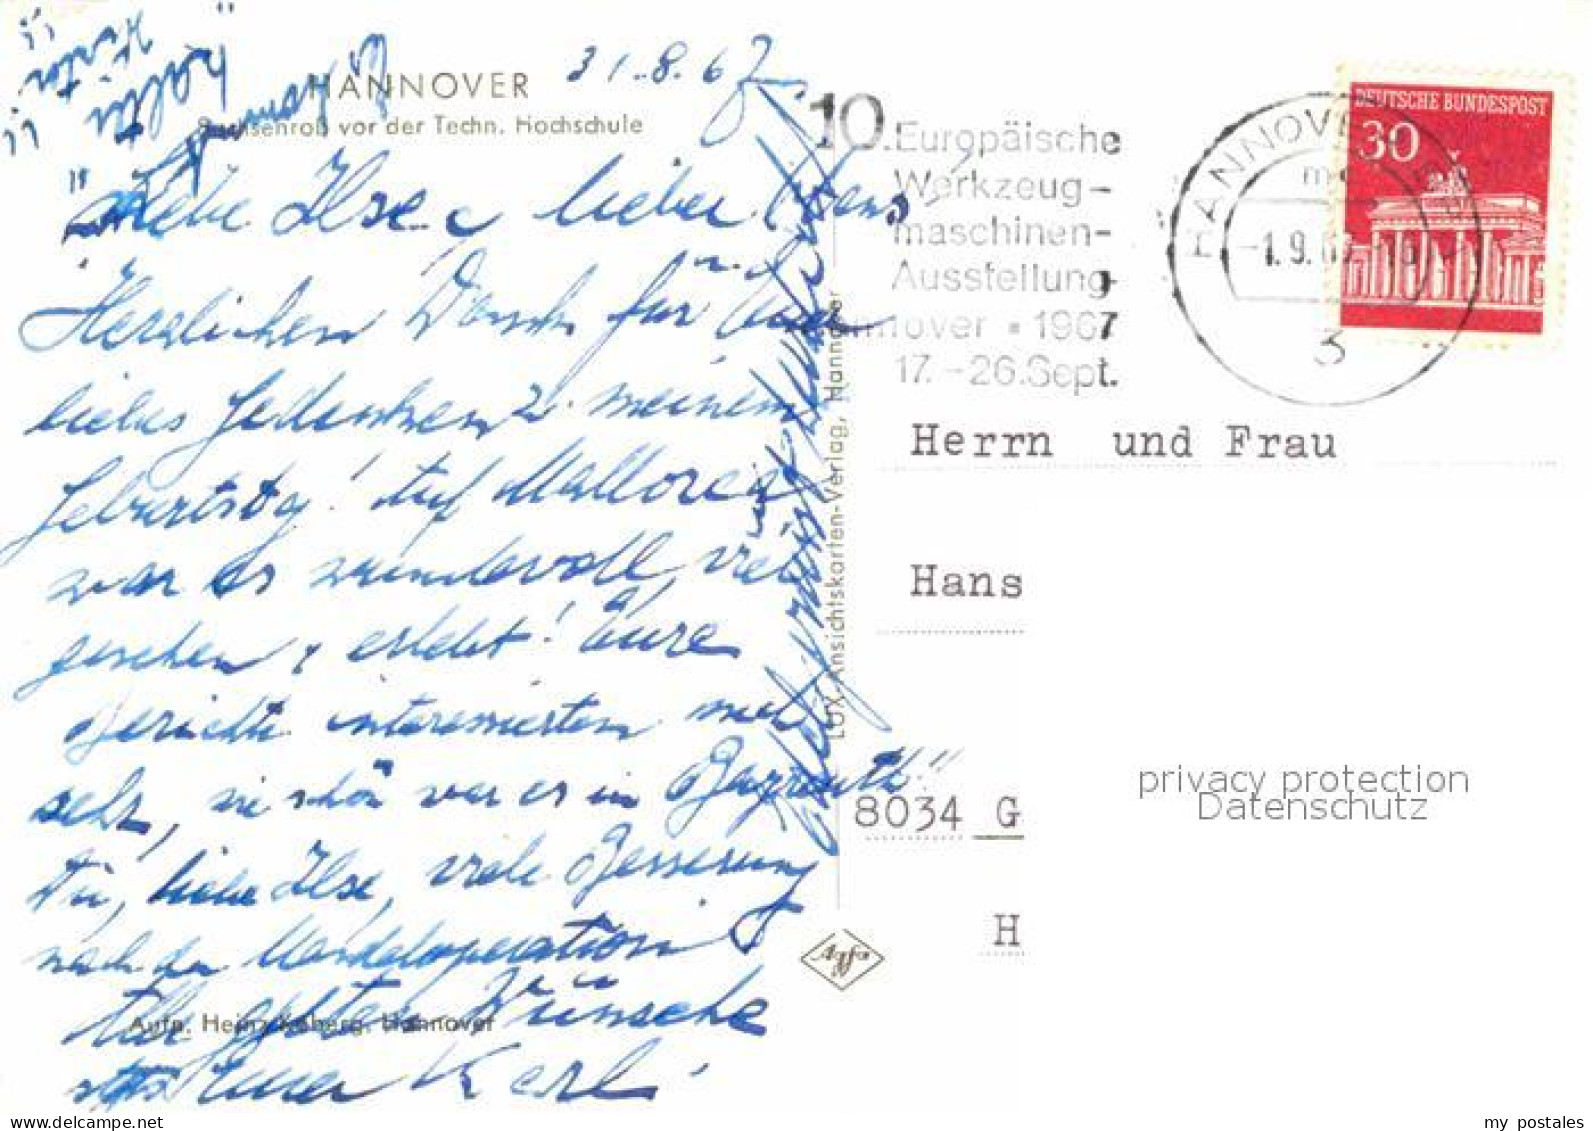 HANNOVER
Sachsenroß vor der Techn. Hochschule
31.8.67
Liebe Ilse & lieber Hans,
Herzlichen Dank für Euer
liebes Gedenken z. meinem
Geburtstag! Auf Mallorca
war es wundervoll, viel
gesehen & erlebt! Eure
Berichte interessierten mich
sehr, wie schön war es in Bayreuth!
Dir, liebe Ilse, viele Besserung
nach der Mandeloperation
Alle guten Wünsche
Euer Karl
Aufn. Heinz Koberg, Hannover
LUX, Ansichtskarten-Verlag, Hannover
Agfa
10. Europäische
Werkzeug-
maschinen-
Ausstellung
Hannover • 1967
17.-26.Sept.
HANNOVER
-1.9.67
3
DEUTSCHE BUNDESPOST
30
Herrn und Frau
Hans
8034 G
H
privacy protection
Datenschutz
my postales
www.delcampe.net